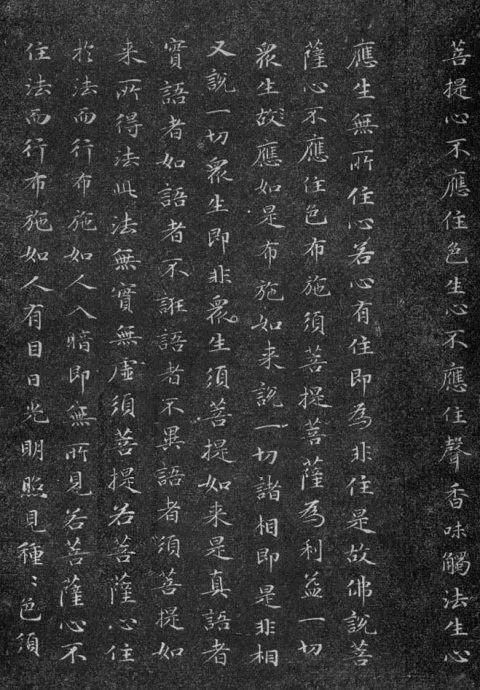 菩提心不應住色生心不應住聲香味觸法生心
應生無所住心若心有住即為非住是故佛說菩
薩心不應住色布施須菩提菩薩為利益一切
衆生故應如是布施如来說一切諸相即是非相
又說一切衆生即非衆生須菩提如来是真語者
實語者如語者不誑語者不異語者須菩提如
来所得法此法無實無虛須菩提若菩薩心住
於法而行布施如人入暗即無所見若菩薩心不
住法而行布施如人有目日光明照見種〻色須